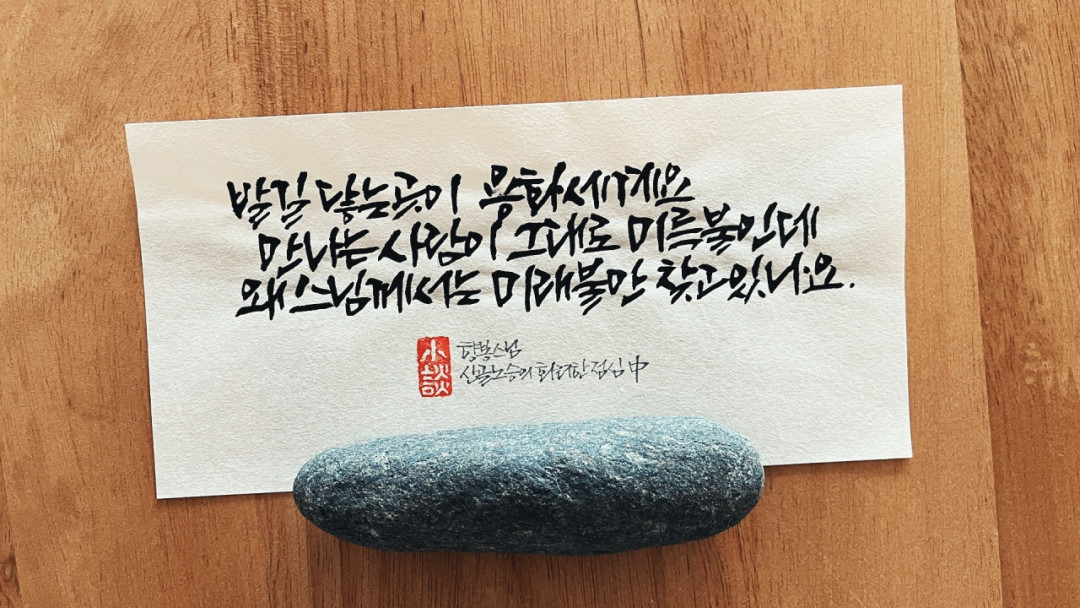 발길 닿는곳이 용화세계요
만나는 사람이 그대로 미륵불인데
왜 스님께서는 미래불만 찾고있나요.
小談
향봉스님
산골노승의 화려한 점심 中